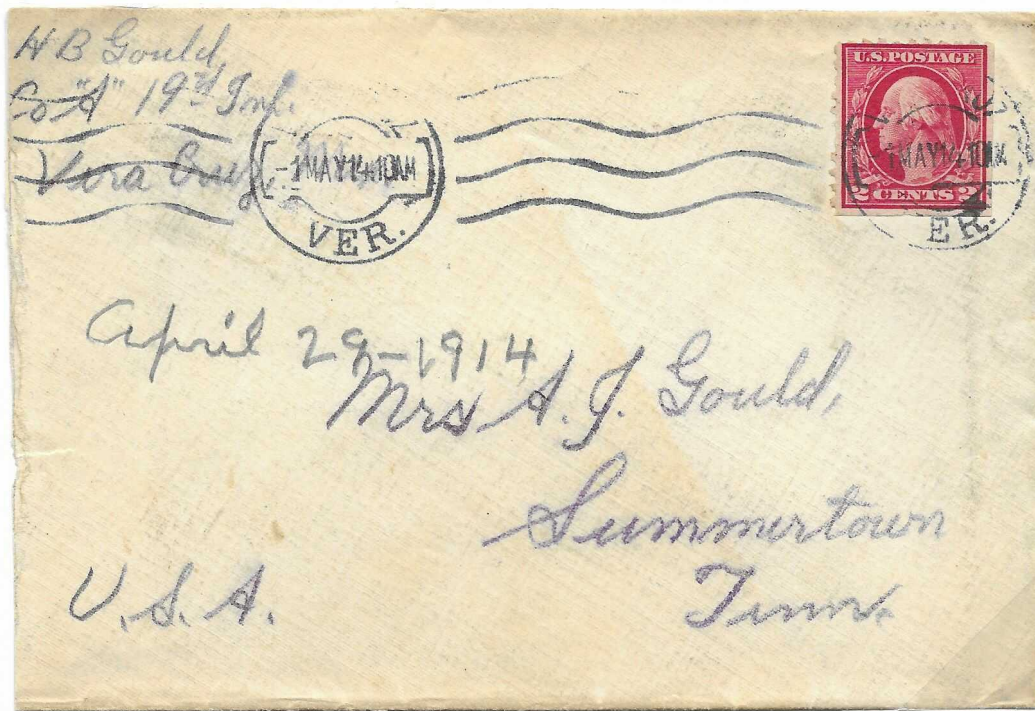 H B Gould,
Co "A" 19th Inf.
Vera Cruz
-1MAY14-10AM
VER.
U.S. POSTAGE
2 CENTS 2
-1MAY14-10AM
ER.
April 29-1914
Mrs A. J. Gould,
Summertown
Tenn.
U.S.A.